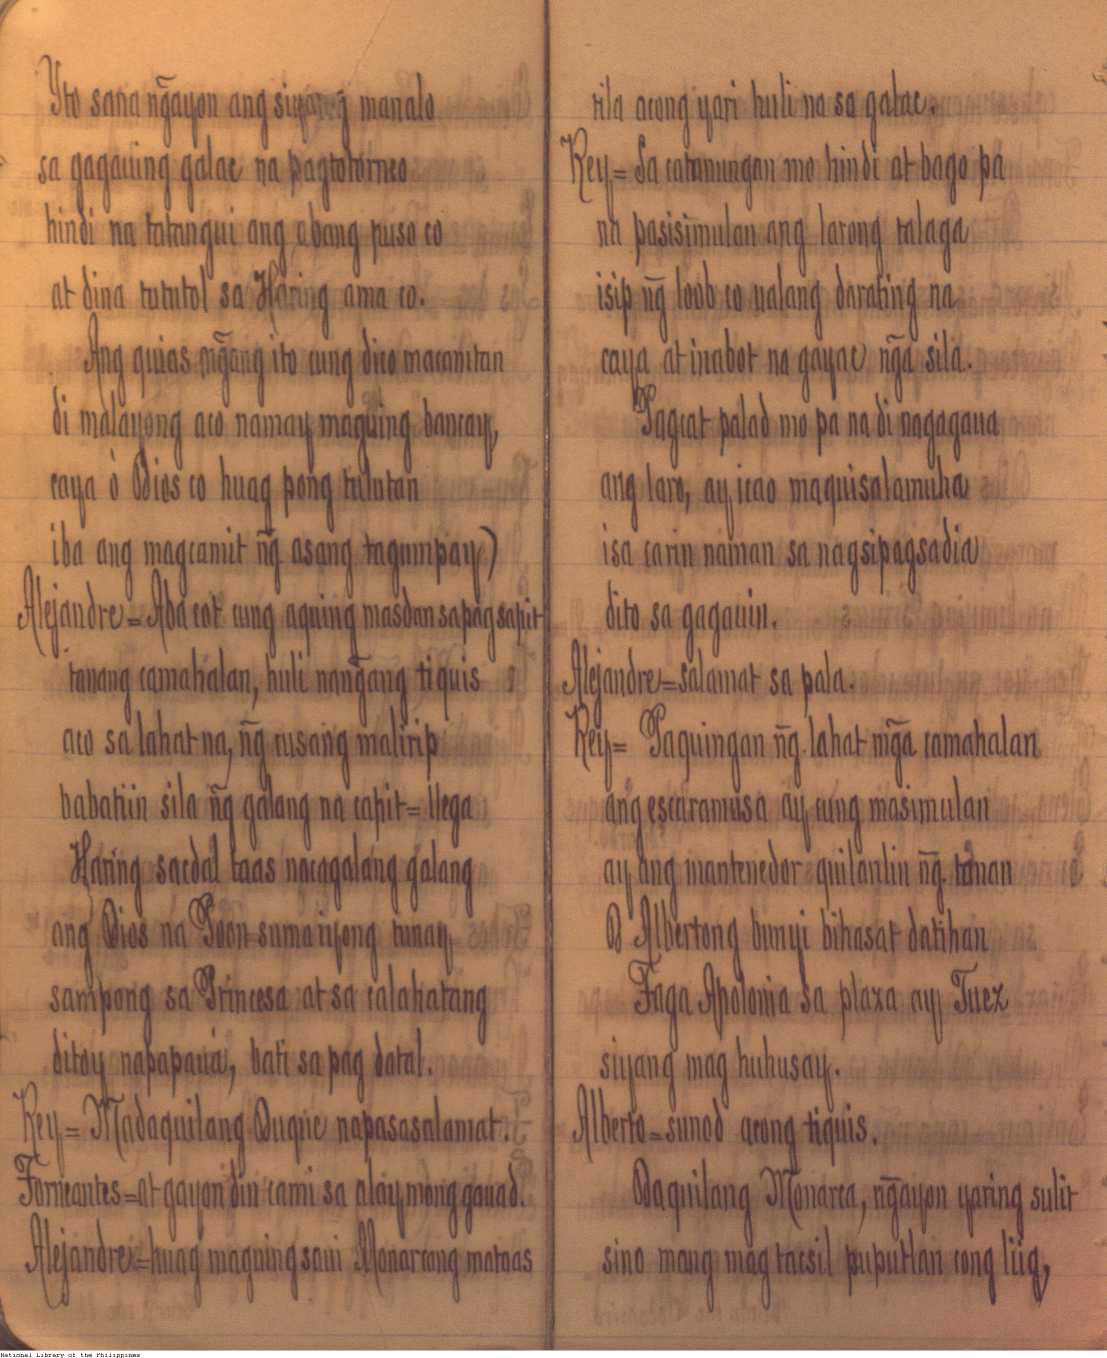 Yto sana ñgayon ang siyang manalo
sa gagauing galac na pagtotorneo
hindi na tatangui ang abang puso co
at dina tututol sa Haring ama co.
Ang quias mg̃ang ito cung dico macamtan
di malayong aco namay maguing bancay,
caya ò Dios co huag pong tulutan
iba ang magcamit ñg asang tagumpay)
Alejandre = Aba cot cung aquing masdan sa pag sapit
tanang camahalan, huli nang̃ang tiquis
aco sa lahat na, ñg cusang malirip
babatiin sila ñg galang na capit = llega
Haring sacdal taas nacagalang galang
ang Dios na Poon sumaiyong tunay
sampong sa Princesa at sa calahatang
ditoy napapaua, bati sa pag datal.
Rey = Madaquilang Duque napasasalamat.
Torneantes = at gayon din cami sa alay mong gauad.
Alejandre = huag maguing saui Monarcang mataas
tila acong yari huli na sa galac.
Rey = Sa catanungan mo hindi at bago pa
na pasisimulan ang larong talaga
isip ñg loob co ualang darating na
caya at inabot na gayac ñga sila.
Pagcat palad mo pa na di nagagaua
ang laro, ay icao maquisalamuha
isa carin naman sa nagsipagsadia
dito sa gagauin.
Alejandre = salamat sa pala.
Rey = Paquingan ñg lahat mg̃a camahalan
ang escaramusa ay cung masimulan
ay ang mantenedor quilanlin ñg tanan
D Albertong bunyi bihasat datihan
Taga Apolonia sa plaza ay Juez
siyang mag huhusay.
Alberto = sunod acong tiquis.
Daquilang Monarca, ñgayon yaring sulit
sino mang mag tacsil puputlan cong liig,
National Library of the Philippines